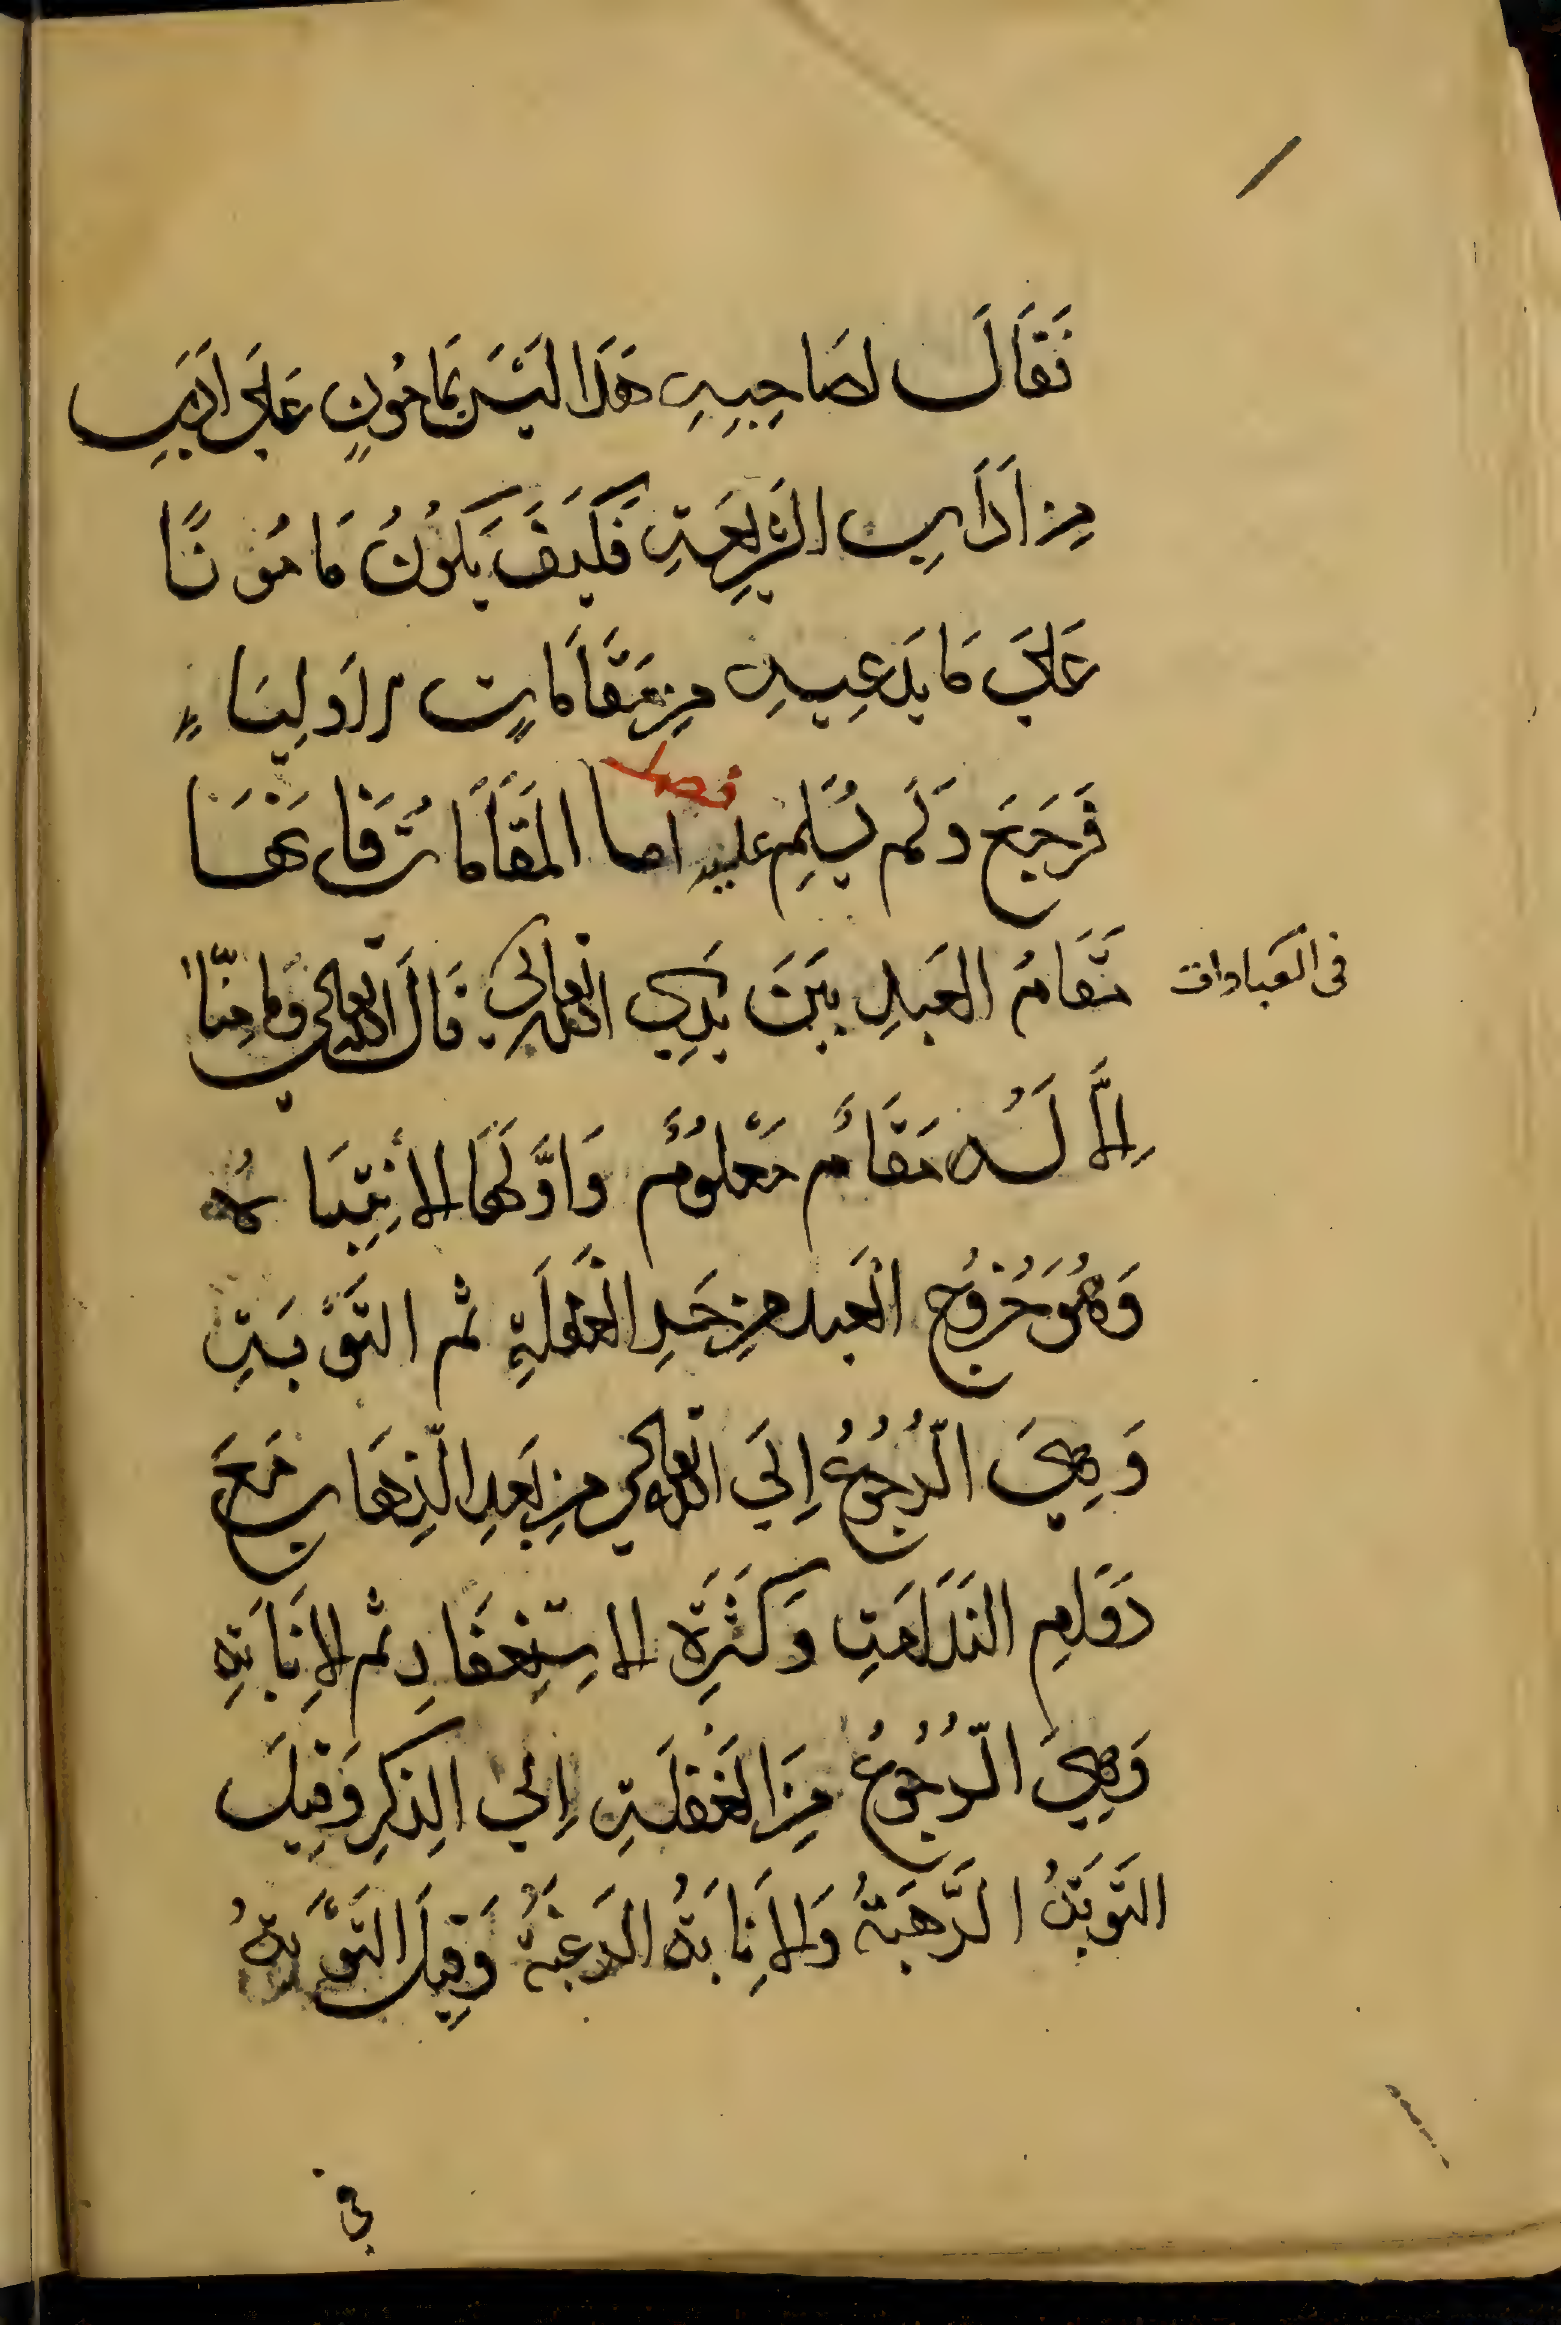 فَقَالَ لصَاحِبِهِ هَذَا لَيْسَ بمَامُونٍ عَلَى اَدَبٍ
مِن اَدَابِ الشَّرِيعَةِ فَكَيْفَ يَكُونُ مَامُونًا
عَلَى مَا يَدعِيهِ مِن مَقَامَاتِ الاَولِيَاءِ
فَرَجَعَ وَلَم يُسَلِم عليه فصل اما المَقَامَاتُ فَاِنَّهَا
مَقَامُ العَبدِ بَينَ يَدَي الله تعالى قَالَ الله تعالى وَمَا مِنَّا
فى العبادات
اِلاَّ لَهُ مَقَامٌ مَعْلُومٌ وَاَوَّلُهَا الاِنْتِبَاهُ
وَهُوَ خُرُوجُ العَبد مِن حَدِ الغَفلَةِ ثم التَّوْبَةِ
وَهِيَ الرُّجُوعُ اِلَى الله تعالى مِن بَعدِ الذِهَابِ مَعَ
دَوَامِ النَدَامَةِ وَكَثرَةِ الاِستِغفَارِ ثم الاِنَابَةِ
وَهِيَ الرُّجُوعُ مِنَ الغَفلَةِ اِلَى الذِكرِ وَقِيلَ
التَوبَةُ الرَّهبَةُ وَالاِنَابَةُ الرَغبَةُ وَقِيلَ التَّوْبَةُ
في